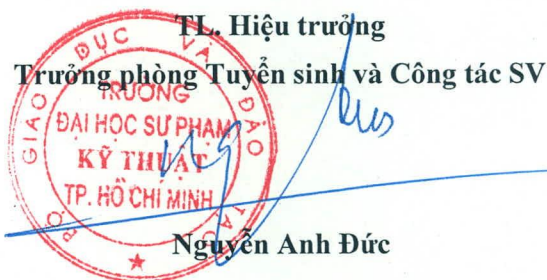 TL. Hiệu trưởng
Trưởng phòng Tuyển sinh và Công tác SV
BỘ GIÁO DỤC VÀ ĐÀO TẠO
TRƯỜNG
ĐẠI HỌC SƯ PHẠM
KỸ THUẬT
TP. HỒ CHÍ MINH
Nguyễn Anh Đức